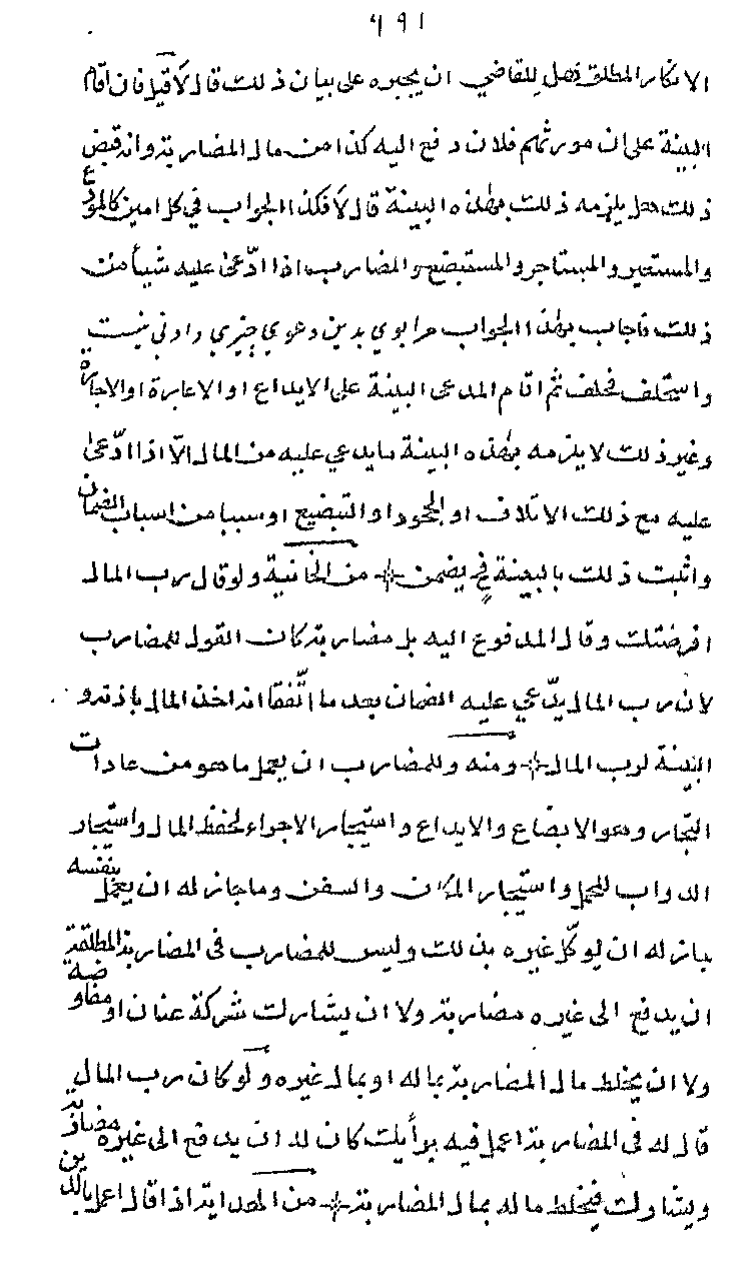 ٦٩١
الانكار المطلق فهل للقاضي ان يجبره على بيان ذلك قال لا قيل فان اقام
البينة على ان مورثهم فلان دفع اليه كذا من مال المضاربة وانه قبض
ذلك هل يلزمه ذلك بهذه البينة قال لا فكذا الجواب في كل امين كالمودع
والمستعير والمستاجر والمستبضع والمضارب اذا ادعى عليه شيأ من
ذلك فاجاب بهذا الجواب مرا بوي بدين دعوي چيزي دادني نيست
واستحلف فحلف ثم اقام المدعى البينة على الايداع او الاعارة او الاجارة
وغير ذلك لا يلزمه بهذه البينة ما يدعي عليه من المال الّا اذا ادّعى
عليه مع ذلك الاتلاف او الجحود او التبضيع او سببا من اسباب الضمان
واثبت ذلك بالبينة فح يضمن من الخانية ولو قال رب المال
اقرضتك وقال المدفوع اليه بل مضاربة كان القول للمضارب
لان رب المال يدّعي عليه الضمان بعد ما اتّفقا انه اخذ المال باذنه و
البينة لرب المال ومنه وللمضارب ان يعمل ما هو من عادات
التجار وهو الابضاع والايداع واستيجار الاجراء لحفظ المال واستيجار
الدواب للحمل واستيجار المكان والسفن وما جاز له ان يعمل بنفسه
جاز له ان يوكّل غيره بذلك وليس للمضارب في المضاربة المطلقة
ان يدفع الى غيره مضاربة ولا ان يشارك شركة عنان او مفاوضة
ولا ان يخلط مال المضاربة بماله او بمال غيره ولو كان رب المال
قال له في المضاربة اعمل فيه برأيك كان له ان يدفع الى غيره مضاربة
ويشارك فيخلط ماله بمال المضاربة من الهداية اذا قال اعمل بالدين